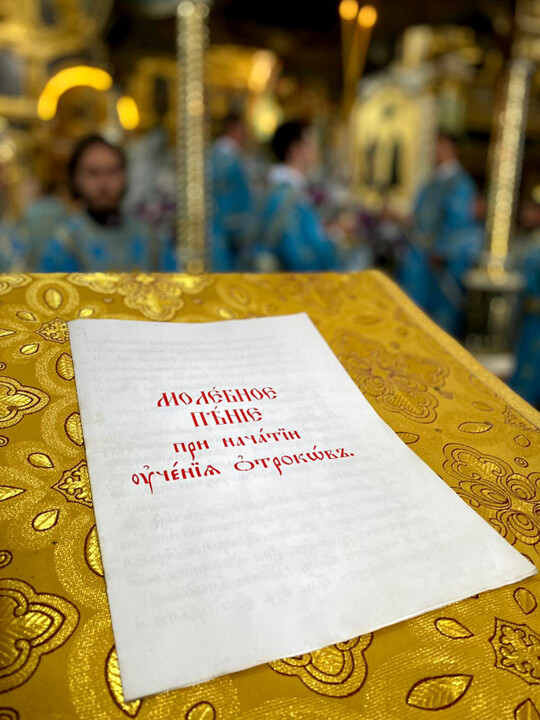 Моле́бное
пѣ́нїе
при нача́тїи
ᲂу҆че́нїѧ ѻ҆трокѡ́въ.